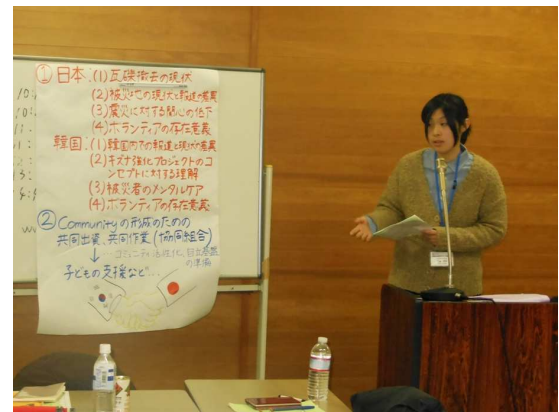 ① 日本:(1) 瓦礫撤去の現状
(2) 被災地の現状と報道の差異
(3) 震災に対する関心の低下
(4) ボランティアの存在意義
韓国:(1) 韓国内での報道と現状の差異
(2) キズナ強化プロジェクトのコ
ンセプトに対する理解
(3) 被災者のメンタルケア
(4) ボランティアの存在意義
② Communityの形成のための
共同出資、共同作業(協同組合)
↓
子どもの支援など…